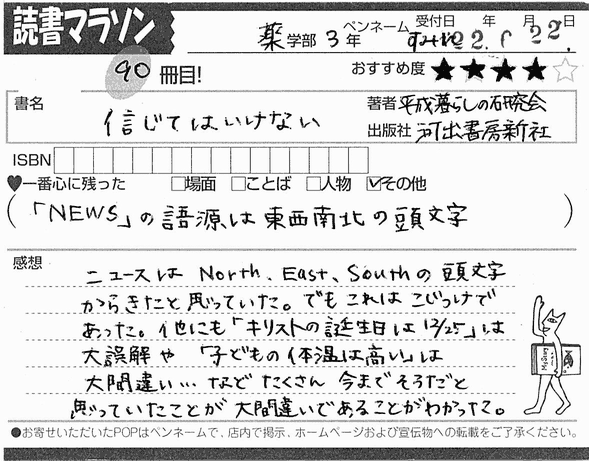 読書マラソン
薬学部 3年 ペンネーム すみれ 受付日 22年 6月 22日
90冊目!
おすすめ度 ★★★★☆
書名 信じてはいけない
著者 平成暮らしの研究会
出版社 河出書房新社
ISBN
♥一番心に残った □場面 □ことば □人物 ☑その他
(「NEWS」の語源は東西南北の頭文字)
感想
ニュースは North、East、Southの頭文字
からきたと思っていた。でもこれはこじつけで
あった。他にも「キリストの誕生日は12/25」は
大誤解や「子どもの体温は高い」は
大間違い…などたくさん今までそうだと
思っていたことが大間違いであることがわかった。
●お寄せいただいたPOPはペンネームで、店内で掲示、ホームページおよび宣伝物への転載をご了承ください。